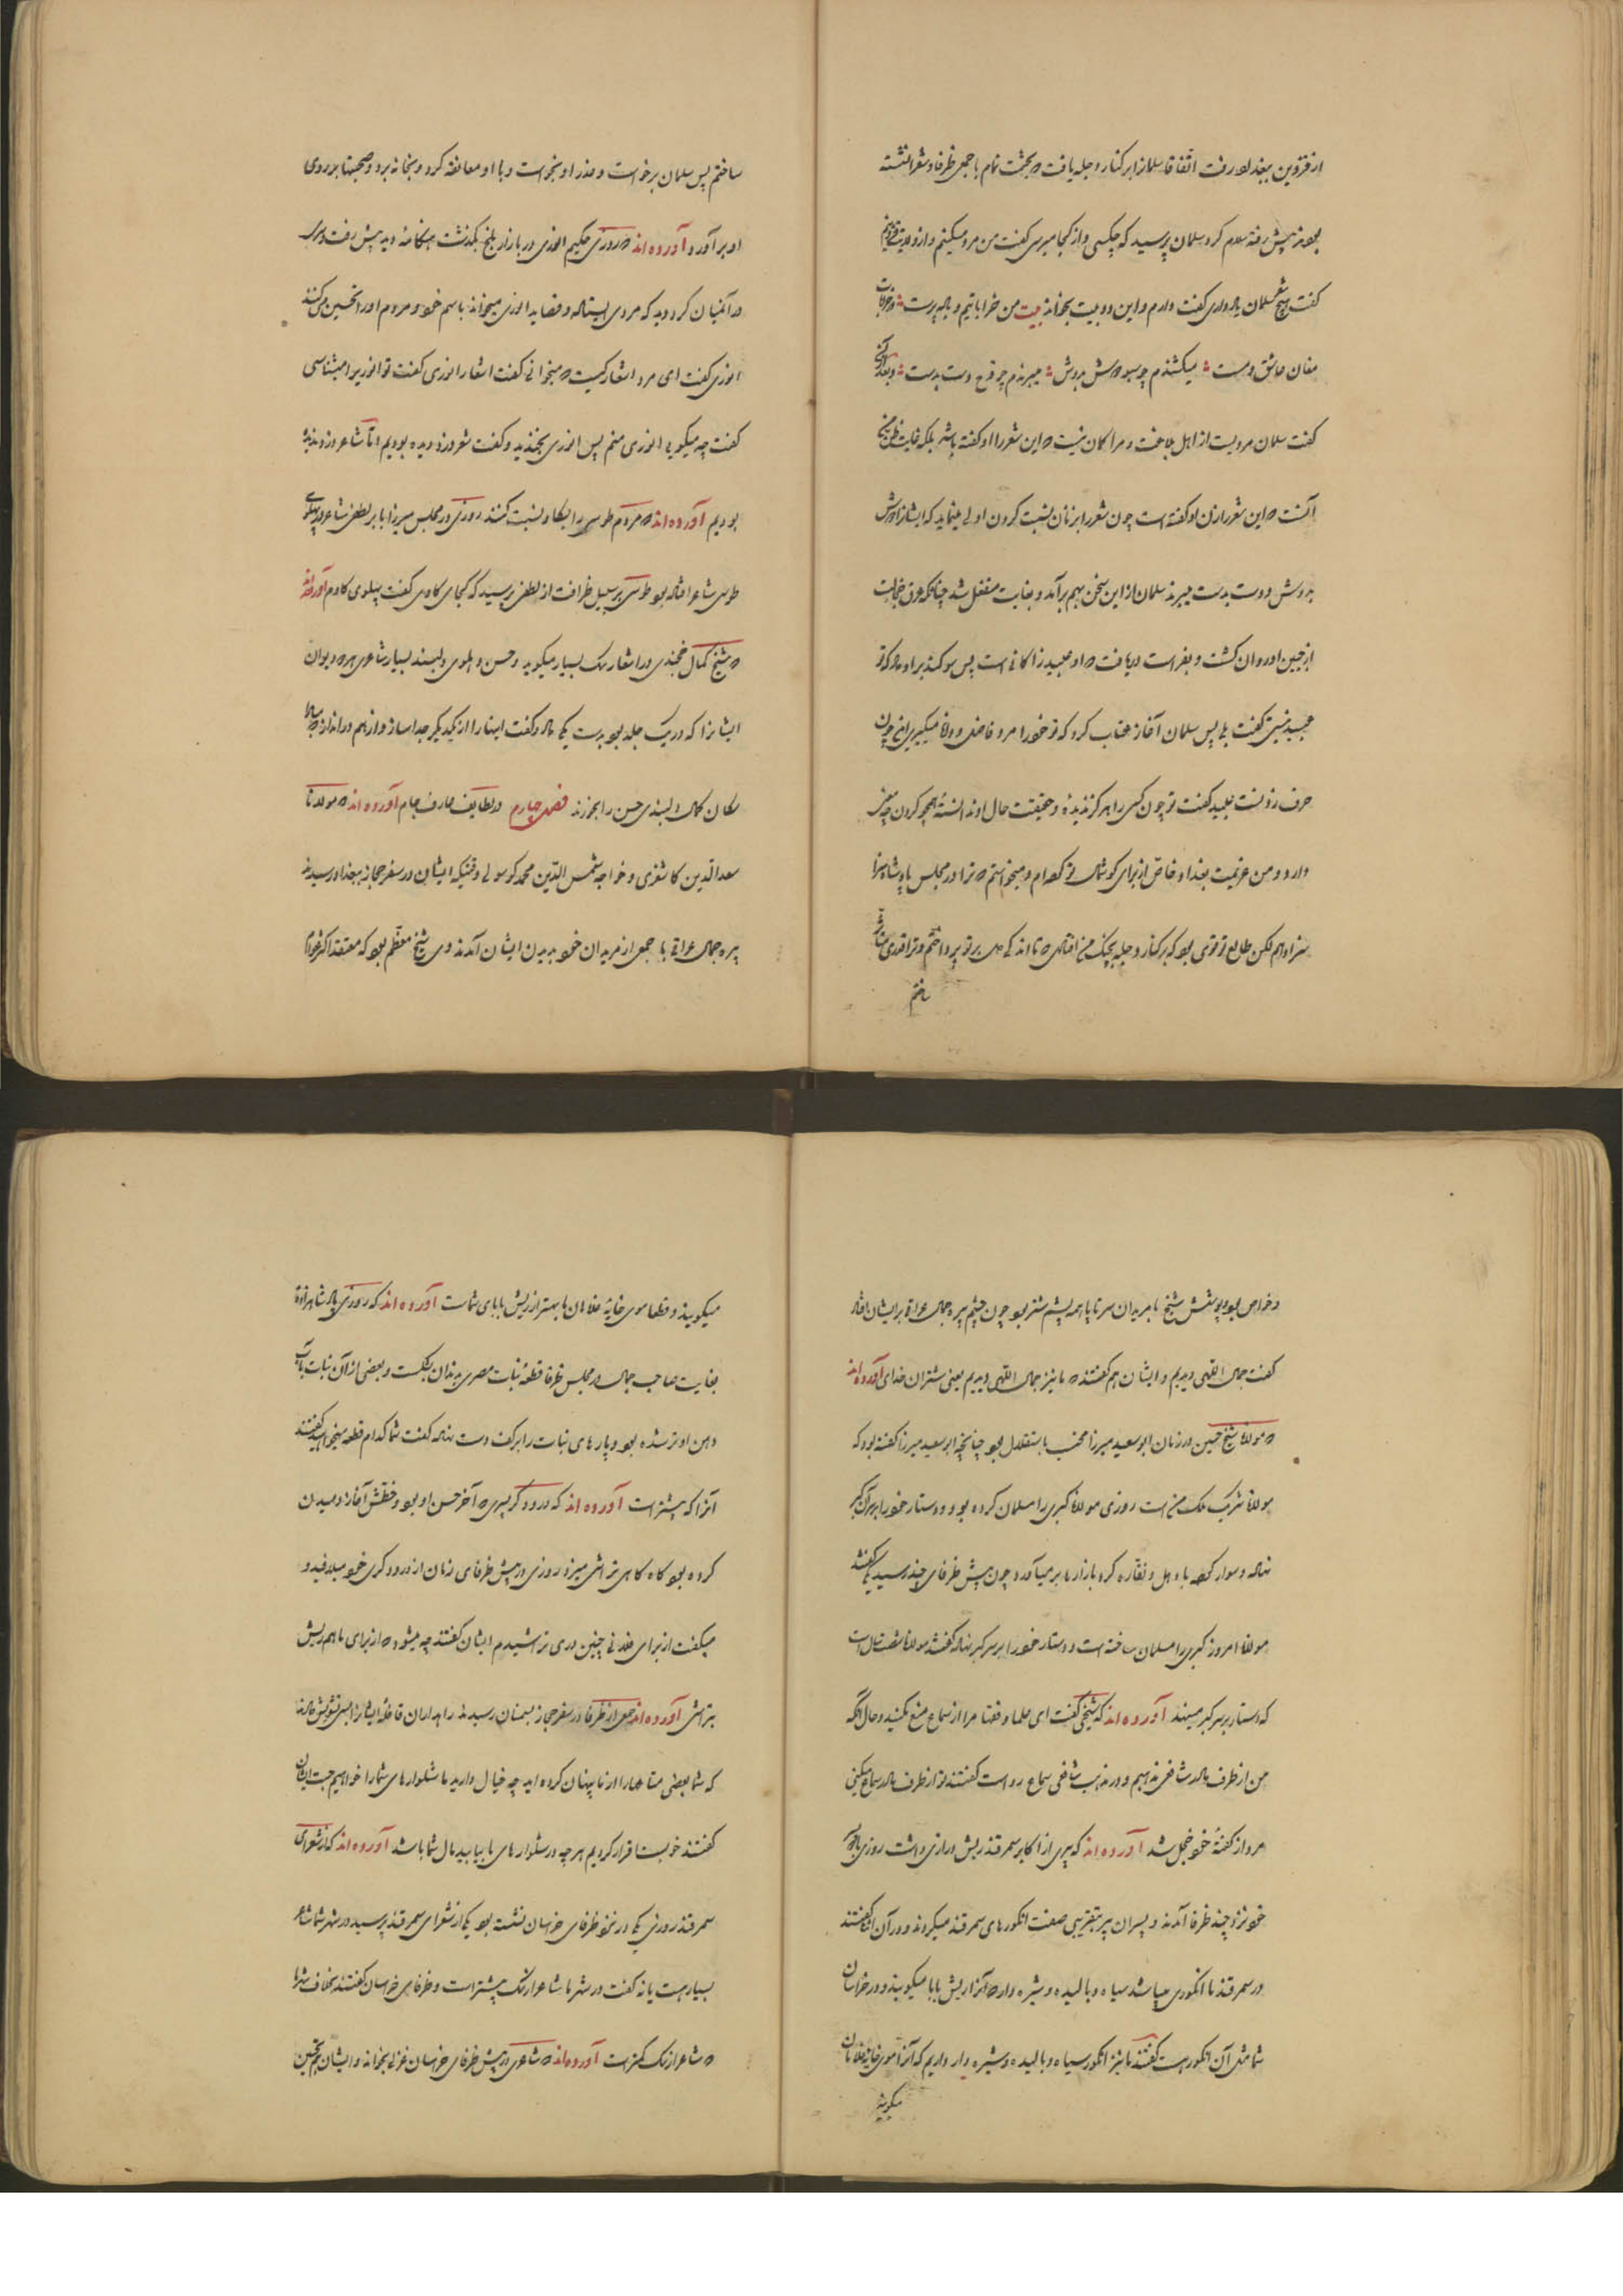 از قزوین ببغداد رفت اتفاقا سلمانرا بر کنار دجله یافت که بحشمت تمام با جمعی ظرفا و شعرا نشسته
بود نزد پیش رفته سلام کرد سلمان پرسید که چه کسی و از کجا میرسی گفت من مرد مسکینم و از ولایت قزوینم
گفت هیچ شعر سلمان یاد داری گفت دارم و این دو بیت بخواند بیت من خراباتیم و باده پرست در خرابات
مغان عاشق و مست میکشندم چو سبو دوش بدوش میبرندم چو قدح دست بدست و بعد از آن
گفت سلمان مردیست از اهل بلاغت و مرا گمان نیست که این شعر را او گفته باشد بلکه غالب ظن من
آنست که این شعر را زن او گفته است چون شعر را بزنان نسبت کردن اولی مینماید که ایشانرا دوش
بدوش و دست بدست میبرند سلمان از این سخن بهم برآمد و بغایت منفعل شد چنانکه عرق خجالت
از جبین او روان گشت و بفراست دریافت که او عبید زاکانی است پس سوگند بر او داد که تو
عبید نیستی گفت بلی پس سلمان آغاز عتاب کرد که تو خود را مرد فاضل و دانا میگیری این چون
حرف زدنست عبید گفت تو چون کسی را هرگز ندیده و حقیقت حال او ندانسته هجو کردن چه معنی
دارد و من عزیمت بغداد خاص از برای گوشمال تو کرده‌ام و میخواستم که ترا در مجلس پادشاه سزا
سزا دهم لکن طالع تو قوی بود که بر کنار دجله بچنگ من افتادی تا اندکی دل بر تو پرداختم و ترا قدری
ساختم
ساختم پس سلمان برخواست و عذر او بخواست و با او معانقه کرد و بخانه برد و صحبتها بر روی
او بر آورد آورده اند که روزی حکیم انوری در بازار بلخ میگذشت هنگامه دید پیش رفت و سر
در آنمیان کرد دید که مردی ایستاده و قصاید انوری میخواند باسم خود و مردم او را تحسین میکنند
انوری گفت ای مرد اشعار کیست که میخوانی گفت اشعار انوری گفت تو انوریرا میشناسی
گفت چه میگویی انوری منم پس انوری بخندید و گفت شعر دزد دیده بودیم اما شاعر دزد ندیده
بودیم آورده اند که مردم طوس را بگاو نسبت کنند روزی در مجلس میرزا بابر لطفی شاعر در پهلوی
طوسی شاعر افتاده بود طوسی بر سبیل ظرافت از لطفی پرسید که کجای گاوی گفت پهلوی گاوم آورده اند
که شیخ کمال خجندی در اشعار سگ بسیار میگوید و حسن دهلوی پسند بسیار شاعری هر دو دیوان
ایشانرا که در یک جلد بود بدست یکی داد و گفت اینها را از یکدیگر جدا ساز و از هم دور انداز مبادا
سگان کمال پسندی حسن را بخورند فصل چهارم در لطایف عارف جام آورده اند که مولانا
سعد الدین کاشغری و خواجه شمس الدین محمد کوسوئی وقتیکه ایشان در سفر حجاز ببغداد رسیدند
پیره جمال عراقی با جمعی از مریدان خود بدیدن ایشان آمدند وی شیخ معظم بود که معتقد اکثر عوام
و خواص بود و پوشش شیخ با مریدان سر تا پا همه پشم شتر بود چون چشم پیره جمال عراقی بر ایشان افتاد
گفت جمال اللهی دیدیم و ایشان هم گفتند که ما نیز جمال اللهی دیدیم یعنی شتران خدای آورده اند
که مولانا شیخ حسین در زمان ابو سعید میرزا محتسب باستقلال بود چنانچه ابو سعید میرزا گفته بود که
مولانا شریک ملک منست روزی مولانا گبری را مسلمان کرده بود و دستار خود را بر سر آن گبر
نهاده و سوار کرده با دهل و نقاره گرد بازار ها بر میآورد چون پیش ظرفای چند رسید گفتند
مولانا امروز گبری را مسلمان ساخته است و دستار خود را بر سر گبر نهاده گفتند مولانا شصت سال است
که دستار بر سر گبر مینهد آورده اند که شیخی گفت ای علما و فقها مرا از سماع منع مکنید و حال آنکه
من از طرف مادر شافعی مذهبم و در مذهب شافعی سماع رواست گفتند تو از طرف مادر سماع میکنی
مرد از گفته خود خجل شد آورده اند که پیری از اکابر سمرقند ریش درازی داشت روزی با پسران
خود نزد چند ظرفا آمدند و پسران پیر بتقریبی صفت انگورهای سمرقند میکردند و در آن اثنا گفتند
در سمرقند ما انگوری میباشد سیاه و بالیده و شیره دار که آنرا ریش بابا میگویند و در خراسان
شما مثل آن انگور هست گفتند ما نیز انگور سیاه و بالیده و شیره دار داریم که آنرا موی خایه غلامان
میگویند
میگویند و قطعا موی خایه غلامان ما بهتر از ریش بابای شماست آورده اند که روزی شاهزاده
بغایت صاحب جمال در مجلس ظرفا قطعه نبات مصری بدندان بشکست و بعضی از آن نبات بآب
دهن او تر شده بود و پارهای نبات را بر کف دست نهاده گفت شما کدام قطعه میخواهید گفتند
آنرا که پیشتر است آورده اند که درودگر پسری که آخر حسن او بود و خطش آغاز دمیدن
کرده بود گاه گاهی تراشی میزد روزی در پیش ظرفای زمان از درودگری خود میلافید و
میگفت از برای فلانی چنین دری تراشیدم ایشان گفتند چه میشود که از برای ما هم ریش
بتراشی آورده اند جمعی از ظرفا در سفر حجاز بسمنان رسیدند راهداران قافله ایشانرا بسی تشویش دادند
که شما بعضی متاعها را از ما پنهان کرده اید چه خیال دارید ما شلوارهای شما را خواهیم جست ایشان
گفتند خوبست قرار کردیم هر چه در شلوارهای ما بیابید مال شما باشد آورده اند که از شعرای
سمرقند روزی یکی در نزد ظرفای خراسان نشسته بود یکی از شعرای سمرقند پرسید در شهر شما شاعر
بسیار هست یا نه گفت در شهر ما شاعر از سگ بیشتر است و ظرفای خراسان گفتند بخلاف شهر ما
که شاعر از سگ کمتر است آورده اند که شاعری در پیش ظرفای خراسان غزلی بخواند و ایشان هم تحسین